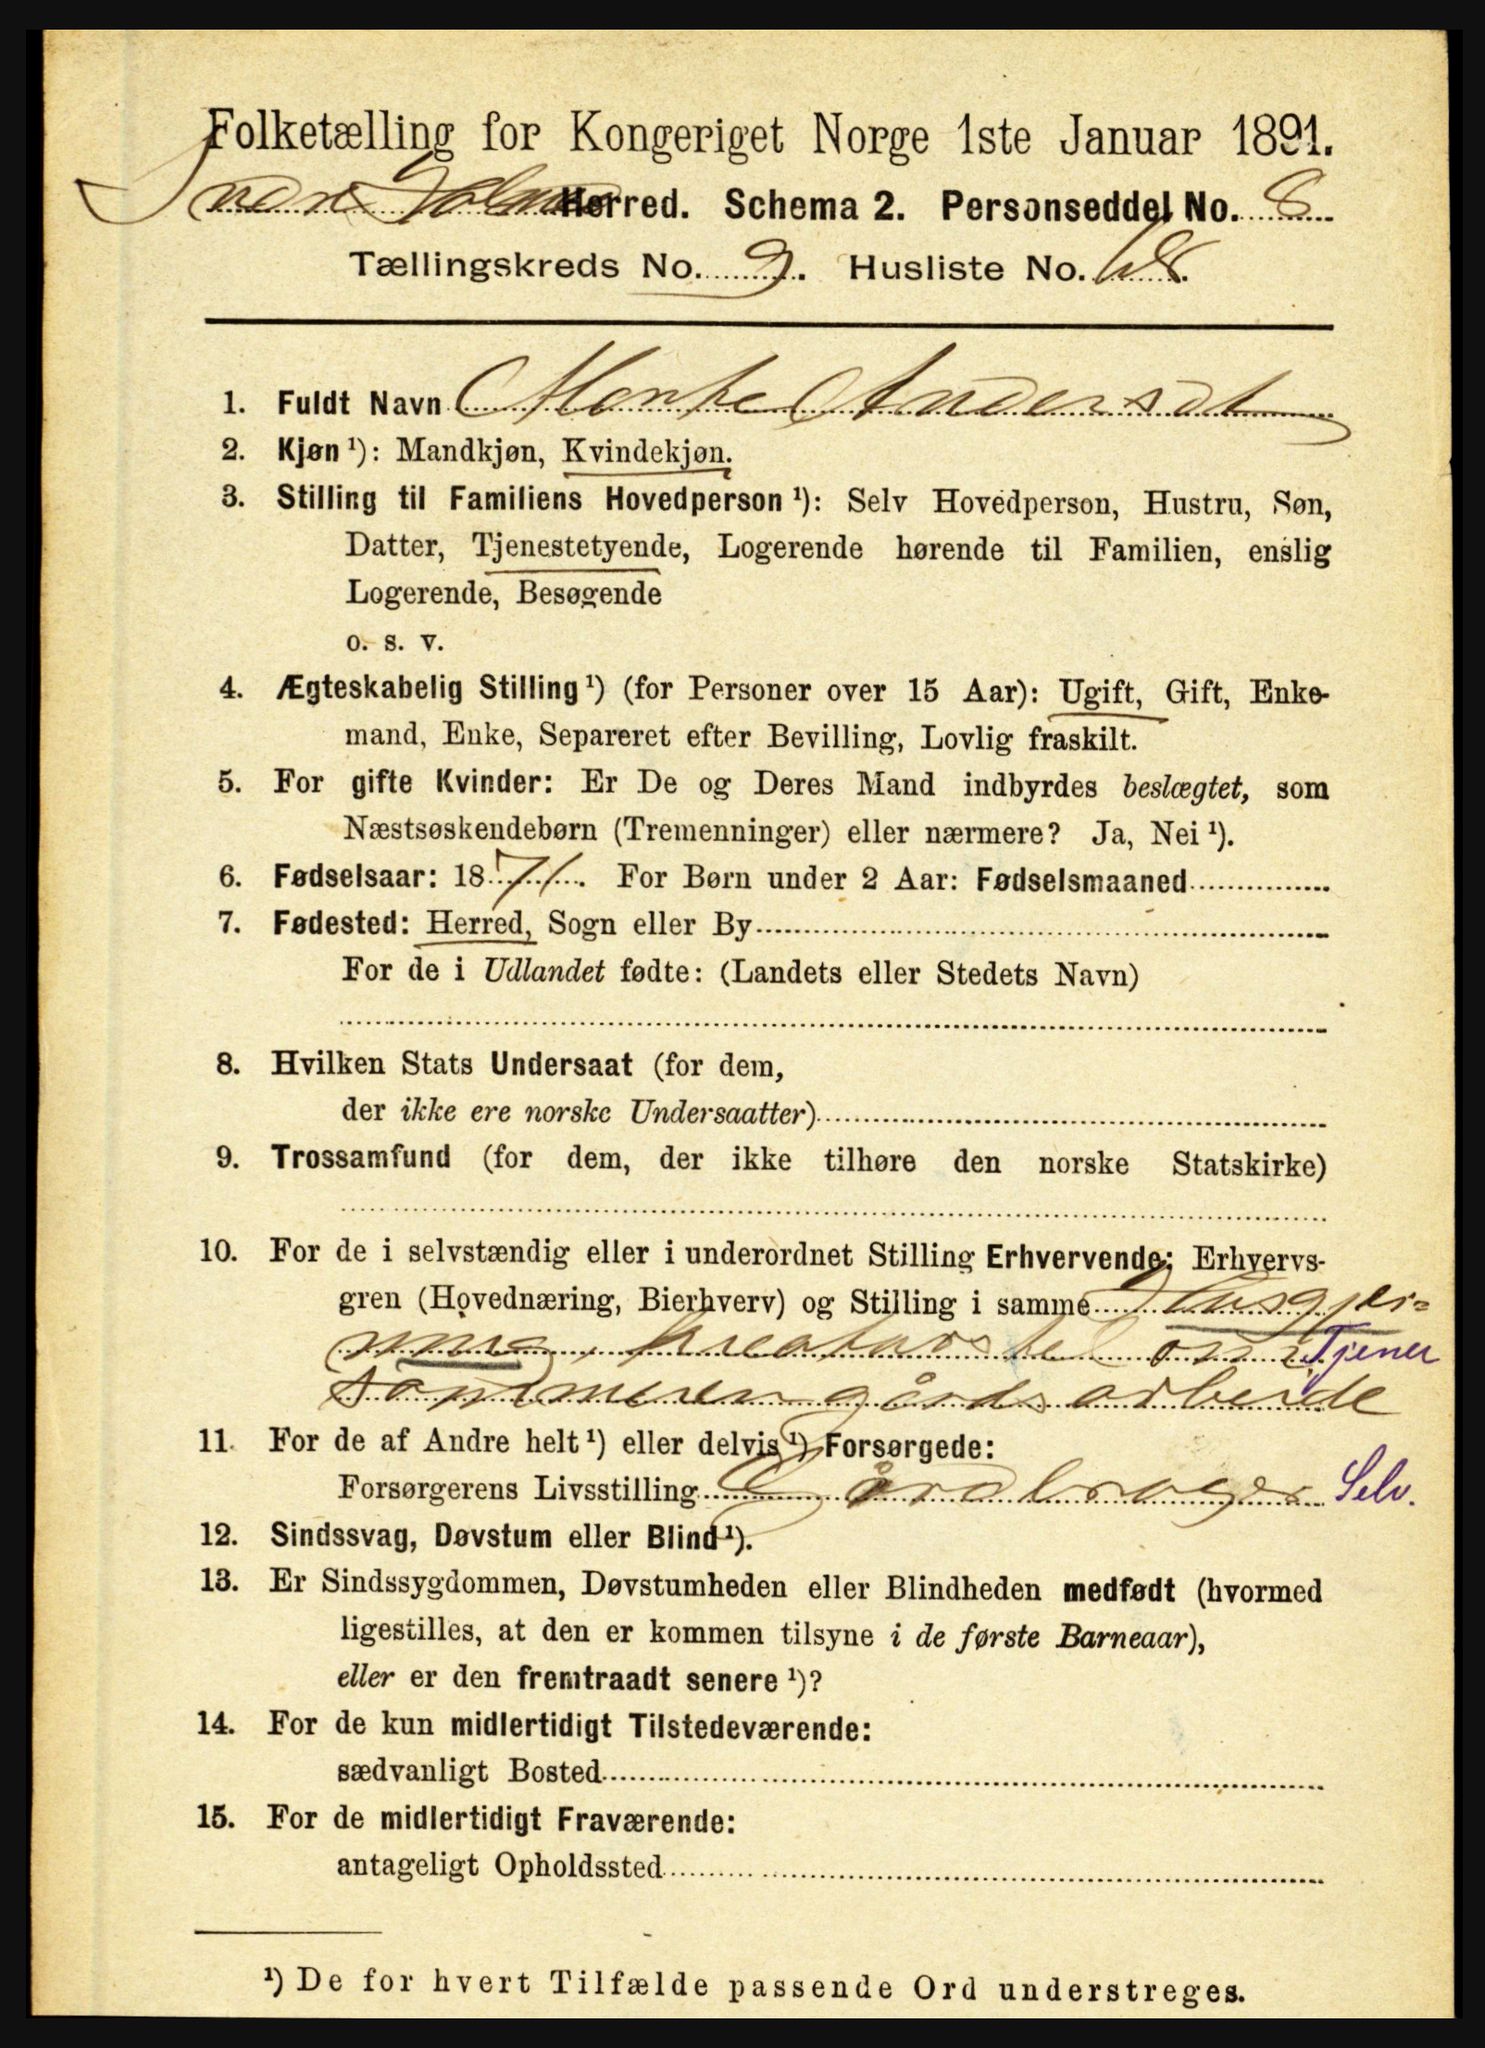 Folketælling for Kongeriget Norge 1ste Januar 1891.
Indre Holmedal Herred. Schema 2. Personseddel No. 8
Tællingskreds No. 9. Husliste No. 68.
1. Fuldt Navn Marte Andersdt
2. Kjøn ¹): Mandkjøn, Kvindekjøn.
3. Stilling til Familiens Hovedperson ¹): Selv Hovedperson, Hustru, Søn,
Datter, Tjenestetyende, Logerende hørende til Familien, enslig
Logerende, Besøgende
o. s. v.
4. Ægteskabelig Stilling ¹) (for Personer over 15 Aar): Ugift, Gift, Enke-
mand, Enke, Separeret efter Bevilling, Lovlig fraskilt.
5. For gifte Kvinder: Er De og Deres Mand indbyrdes beslægtet, som
Næstsøskendebørn (Tremenninger) eller nærmere? Ja, Nei ¹).
6. Fødselsaar: 1871. For Børn under 2 Aar: Fødselsmaaned
7. Fødested: Herred, Sogn eller By
For de i Udlandet fødte: (Landets eller Stedets Navn)
8. Hvilken Stats Undersaat (for dem,
der ikke ere norske Undersaatter)
9. Trossamfund (for dem, der ikke tilhøre den norske Statskirke)
10. For de i selvstændig eller i underordnet Stilling Erhvervende: Erhvervs-
gren (Hovednæring, Bierhverv) og Stilling i samme Husgjer=
ning, kreaturstel om Tjener
sommeren gårdsarbeide
11. For de af Andre helt ¹) eller delvis ¹) Forsørgede:
Forsørgerens Livsstilling Gårdbruger Selv.
12. Sindssvag, Døvstum eller Blind ¹).
13. Er Sindssygdommen, Døvstumheden eller Blindheden medfødt (hvormed
ligestilles, at den er kommen tilsyne i de første Barneaar),
eller er den fremtraadt senere ¹)?
14. For de kun midlertidigt Tilstedeværende:
sædvanligt Bosted
15. For de midlertidigt Fraværende:
antageligt Opholdssted
¹) De for hvert Tilfælde passende Ord understreges.